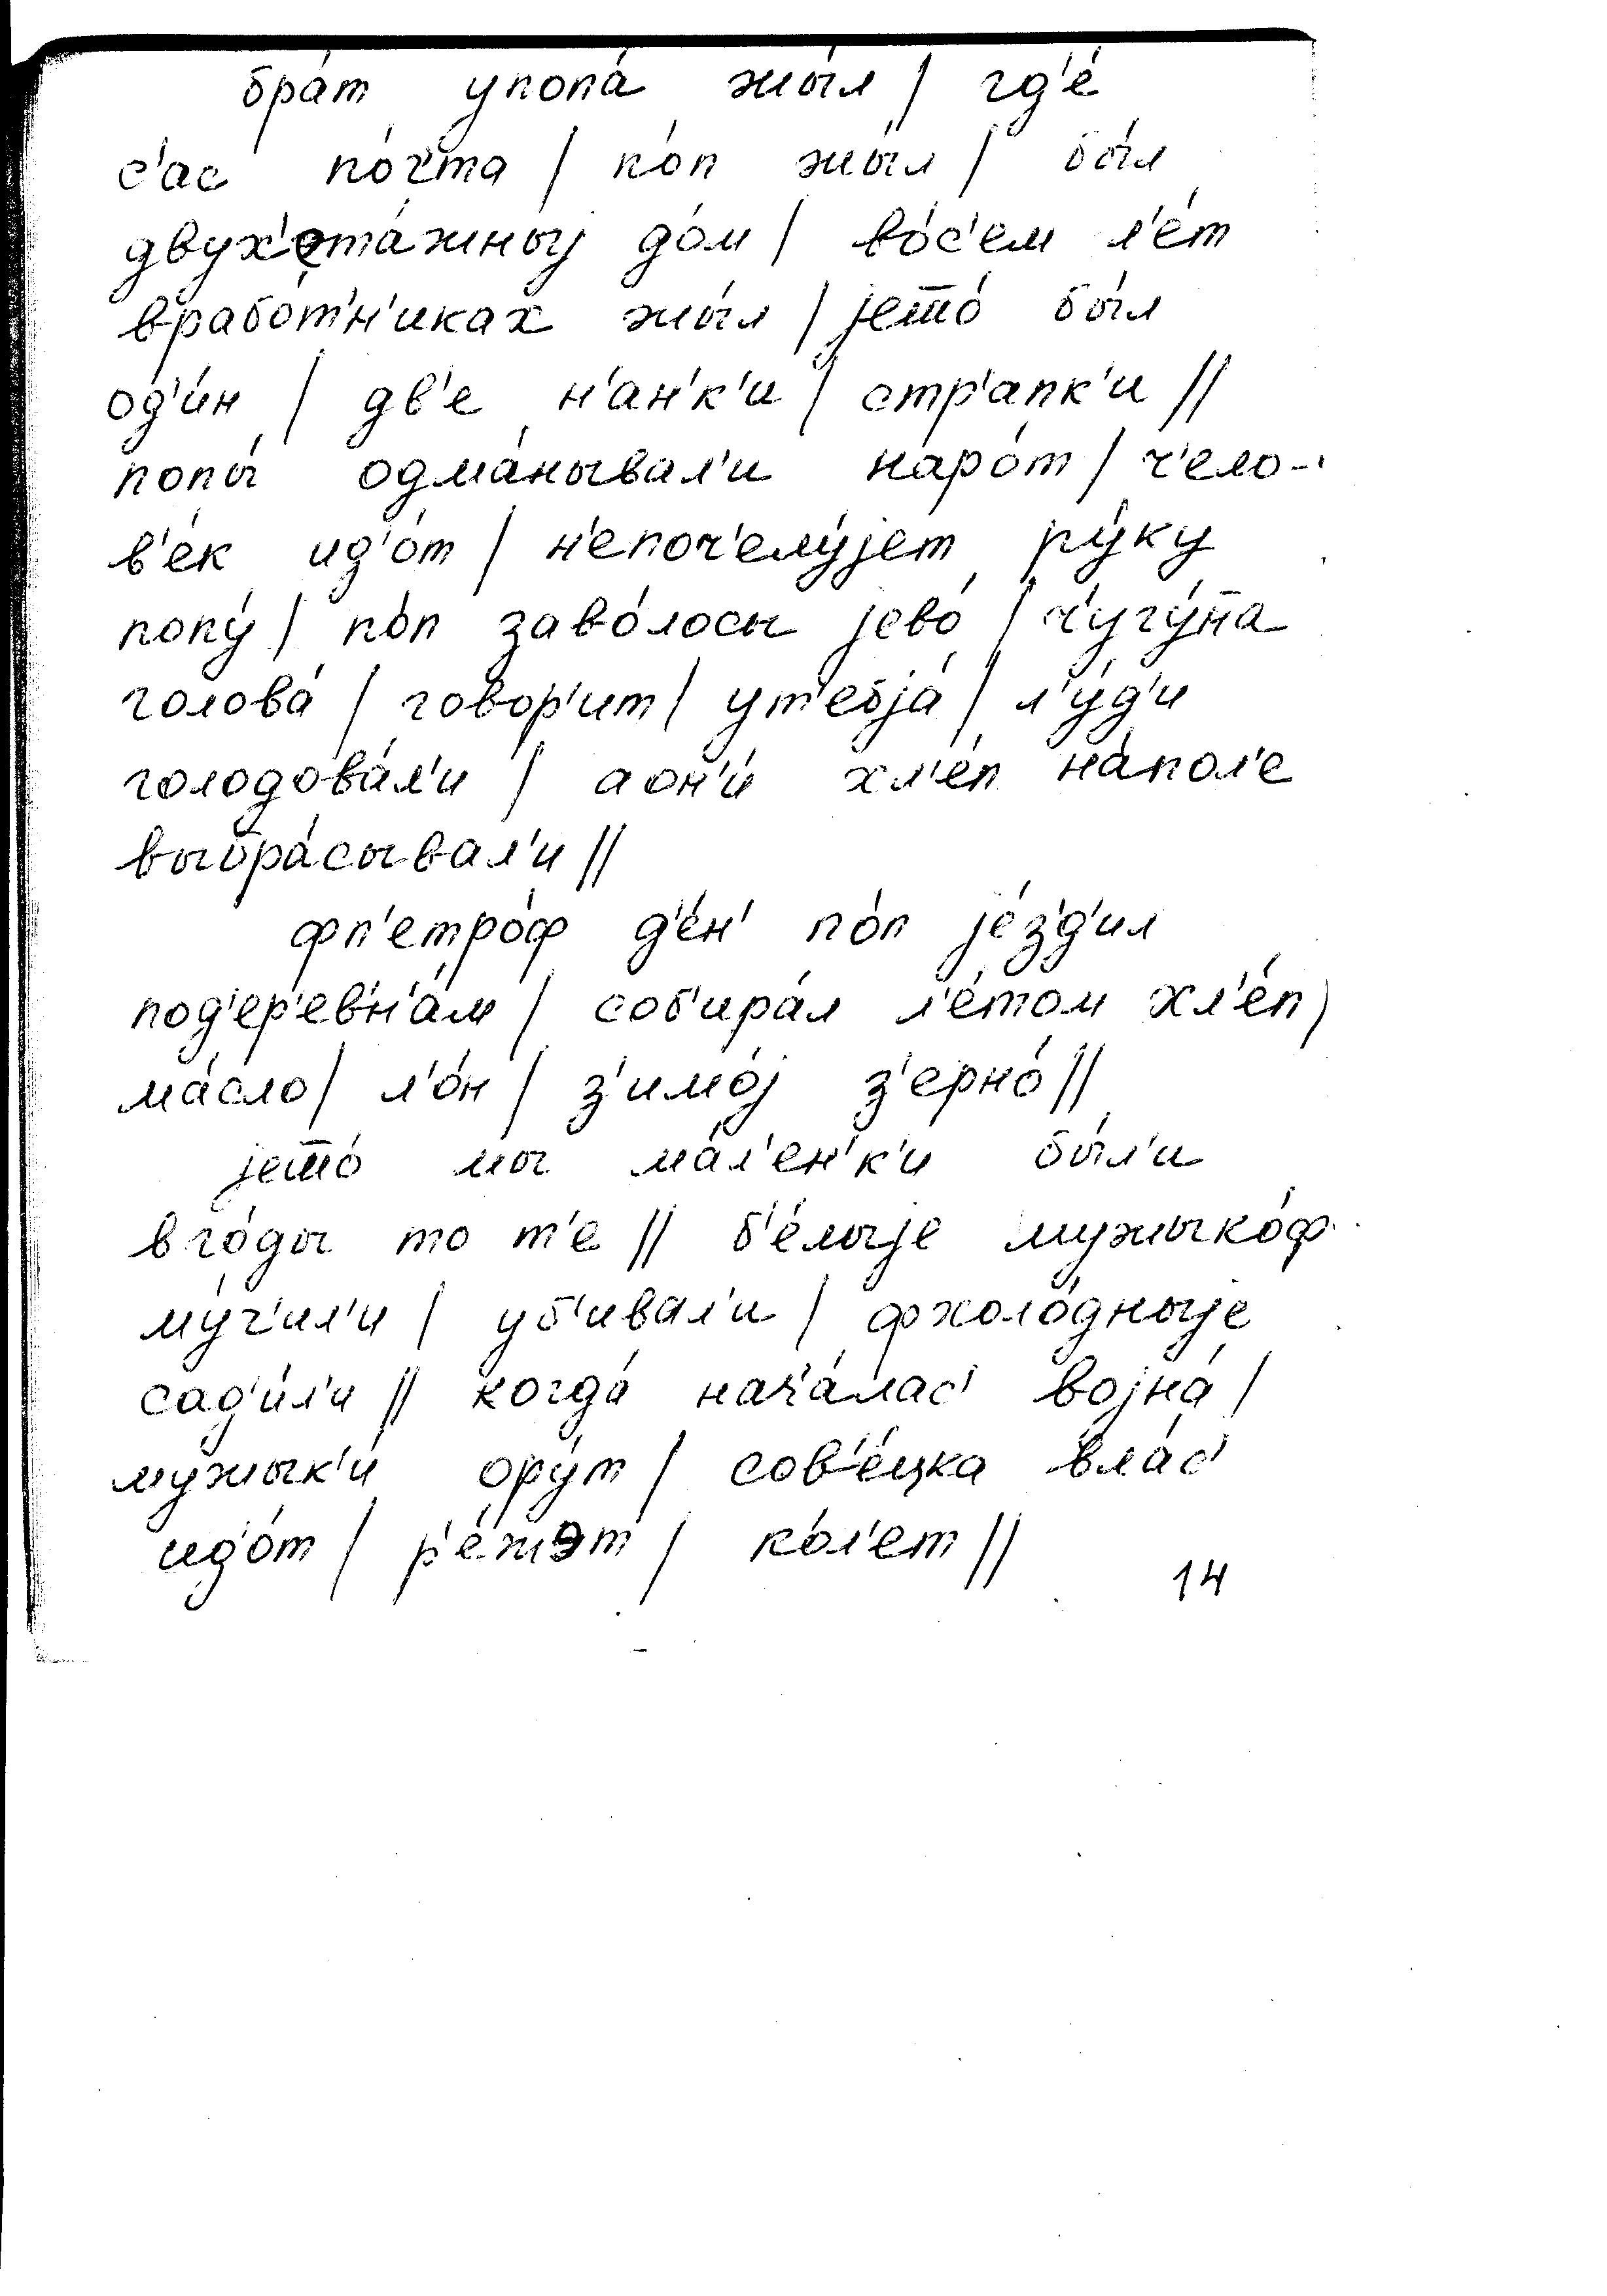 бра́т упопа́ жы́л / гд'е́
с'ас по́ч'та / по́п жы́л / бы́л
двух'ета́жныj до́м / во́с'ем л'е́т
врабо́т'н'иках жы́л / jет̄о́ бы́л
од'и́н / дв'е н'а́н'к'и / стр'а́пк'и //
попы́ одма́нывал'и наро́т / ч'ело-
в'е́к ид'о́т / н'епоч'елу́jет ру́ку
попу́ / по́п заво́лосы jево́ / ч'угу́н̄а
голова́ / говор'ит / ут'ебjа́ / л'у́д'и
голодова́л'и / аон'и́ хл'е́п на́пол'е
выбра́сывал'и //
фп'етро́ф д'е́н' по́п jе́з'д'ил
под'ер'ев'н'а́м / соб'ира́л л'е́том хл'е́п /
ма́сло / л'о́н / з'имо́j з'ерно́ //
jет̄о́ мы ма́л'ен'к'и бы́л'и
в го́ды то т'е // б'е́лыjе мужыко́ф
му́ч'ил'и / уб'ивал'и / фхоло́дныjе
сад'и́л'и // когда́ нач'а́лас' воjна́ /
мужык'и́ ору́т / сов'е́цка вла́с'
ид'о́т / р'е́жэт / ко́л'ет //
14